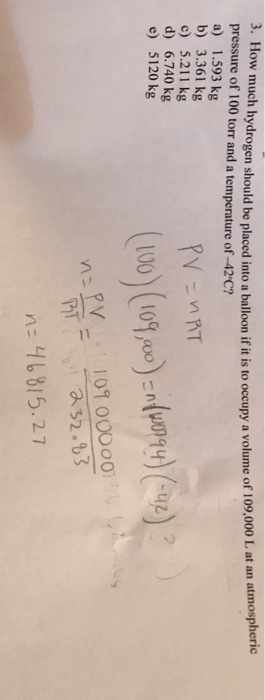 3. How much hydrogen should be placed into a balloon if it is to occupy a volume of 109,000 L at an atmospheric
pressure of 100 torr and a temperature of -42°C?
a) 1.593 kg
b) 3.361 kg
c) 5.211 kg
d) 6.740 kg
e) 5120 kg
PV = nRT
(100) (109,000) = n (-42) ?
n = PV / RT = 10900000 / 232.83
n = 46815.27